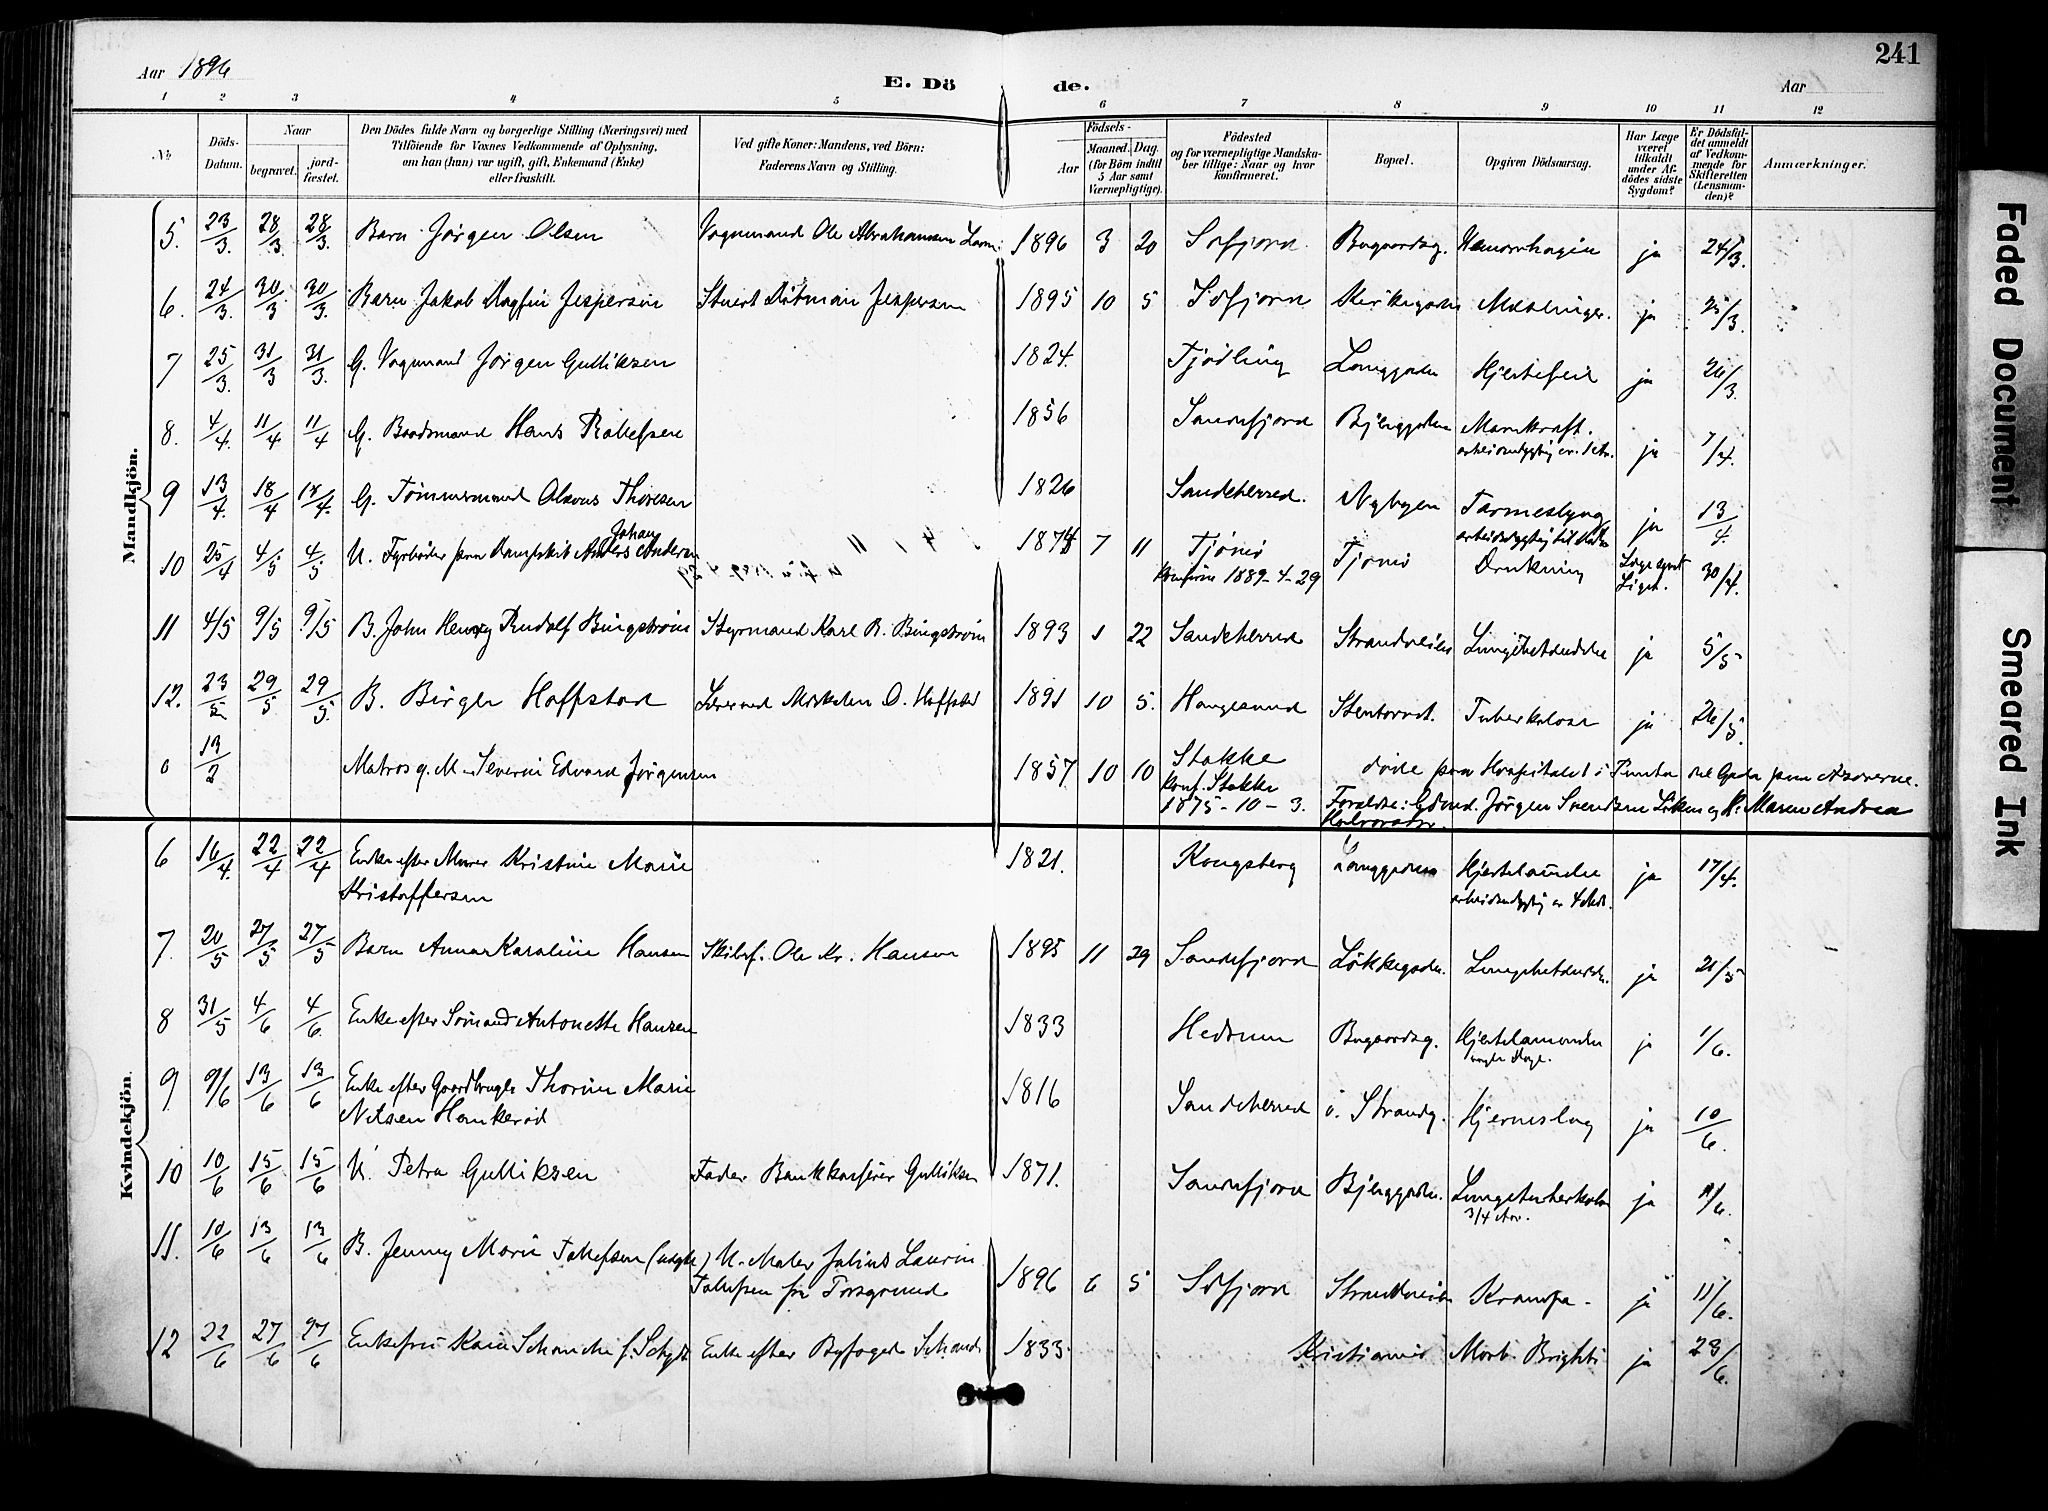 241
Aar 1896
E. Dö de.
Aar
1 2 3 4 5 6 7 8 9 10 11 12
No
Döds-Datum.
Naar
begravet.
jordfæstet.
Den Dödes fulde Navn og borgerlige Stilling (Næringsvei) med
Tilföiende for Voxnes Vedkommende af Oplysning,
om han (hun) var ugift, gift, Enkemand (Enke)
eller fraskilt.
Ved gifte Koner: Mandens, ved Börn:
Faderens Navn og Stilling.
Födsels-
Aar
Maaned. Dag.
(for Börn indtil
5 Aar samt
Værnepligtige).
Födested
og for værnepligtige Mandska-
ber tillige: Naar og hvor
konfirmeret.
Bopæl.
Opgiven Dödsaarsag.
Har Læge
været
tilkaldt
under Af-
dödes sidste
Sygdom?
Er Dödsfal-
det anmeldt
af Vedkom-
mende for
Skifteretten
(Lensman-
den)?
Anmærkninger.
Mandkjön.
5. 23/3. 28/3. 28/3. Barn Jørgen Olsen Vognmand Ole Abrahamsen 1896 3 20 Sdfjord Bugaardsg. Hæmorrhagia ja 24/3.
6. 24/3. 30/3 30/3. Barn Jakob Dagfin Jespersen Stuert Ditman Jespersen 1895 10 5 Sdfjord Kirkegaden Mæslinger. ja 25/3.
7 25/3. 31/3 31/3. G. Vognmand Jørgen Gulliksen 1824. Tjødling Langgaden Hjertefeil ja 26/3.
8. 4/4. 11/4 11/4 G. Baadsmand Hans Rollefsen 1856 Sandefjord Bjerggaden Mavekræft. ja 7/4.
9 13/4. 18/4 18/4. G. Tømmermand Olavus Thoresen 1826 Sandeherred. Nybyen Tarmeslyng ja 13/4.
10 25/4 4/5 4/5 U. Fyrbøder paa Dampskib Johan Anders Andersen 1874 7 11 Tjømø Tjømø Drukning Læge synet Liget. 30/4.
Konfirm 1889-4-29
11 4/5 9/5 9/5 B. John Henry Rudolf Bingstrøm Styrmand Karl R. Bingstrøm 1893 1 22 Sandeherred Strandveien Lungebetændelse ja 5/5
12. 23/5 29/5 29/5. B. Birger Hoffstad O. Hoffstad 1891 10 5. Haugesund Tuberkulose ja 26/5.
0 13/2 Matros g. M. Severin Edvard Jørgensen 1857 10 10 Stokke døde paa Hospitalet i Punta del Gada paa Azorerne.
Konf. Stokke
1875-10-3. Forældre: Gdmd. Jørgen Svendsen og H: Maren Andrea
Halvorsdtr.
Kvindekjön.
6 16/4. 22/4 22/4 Enke efter Murer Kristine Marie 1821. Kongsberg Langgaden Hjertelamelse ja 17/4.
Kristoffersen
7. 20/5 27/5 27/5 Barn Anna Karoline Hansen Skibsf. Ole Kr. Hansen 1895 11 29 Sandefjord Løkkegaden. Lungebetændelse. ja 21/5
8 31/5 4/6 4/6. Enke efter Sømand Antonette Hansen 1833 Hedrum Bugaardsg. Hjertelammelse ja 1/6.
nogle Dage.
9. 9/6 13/6 13/6 Enke efter Gaardbruger Thorine Marie 1816 Sandeherred ö. Strandg. Hjerneslag ja 10/6.
Nilsen Haukerød
10 10/6 15/6 15/6 U. Petra Gulliksen Fader Bankkasserer Gulliksen 1871. Sandefjord Bjerggaden. Lungetuberkulose ja 11/6.
3/4 Aar.
11. 10/6 13/6 13/6 B. Jenny Marie Tollefsen (uægte) U. Maler Julius Laurin 1896 6 5 Sdfjord Strandveien Krampe. ja 11/6.
Tollefsen fra Porsgrund
12 22/6 27/6 27/6 Enkefru Schanche f. Enke efter Byfoged 1833. Kristiania Morb. Brighti ja 23/6.
Faded Document
Smeared Ink